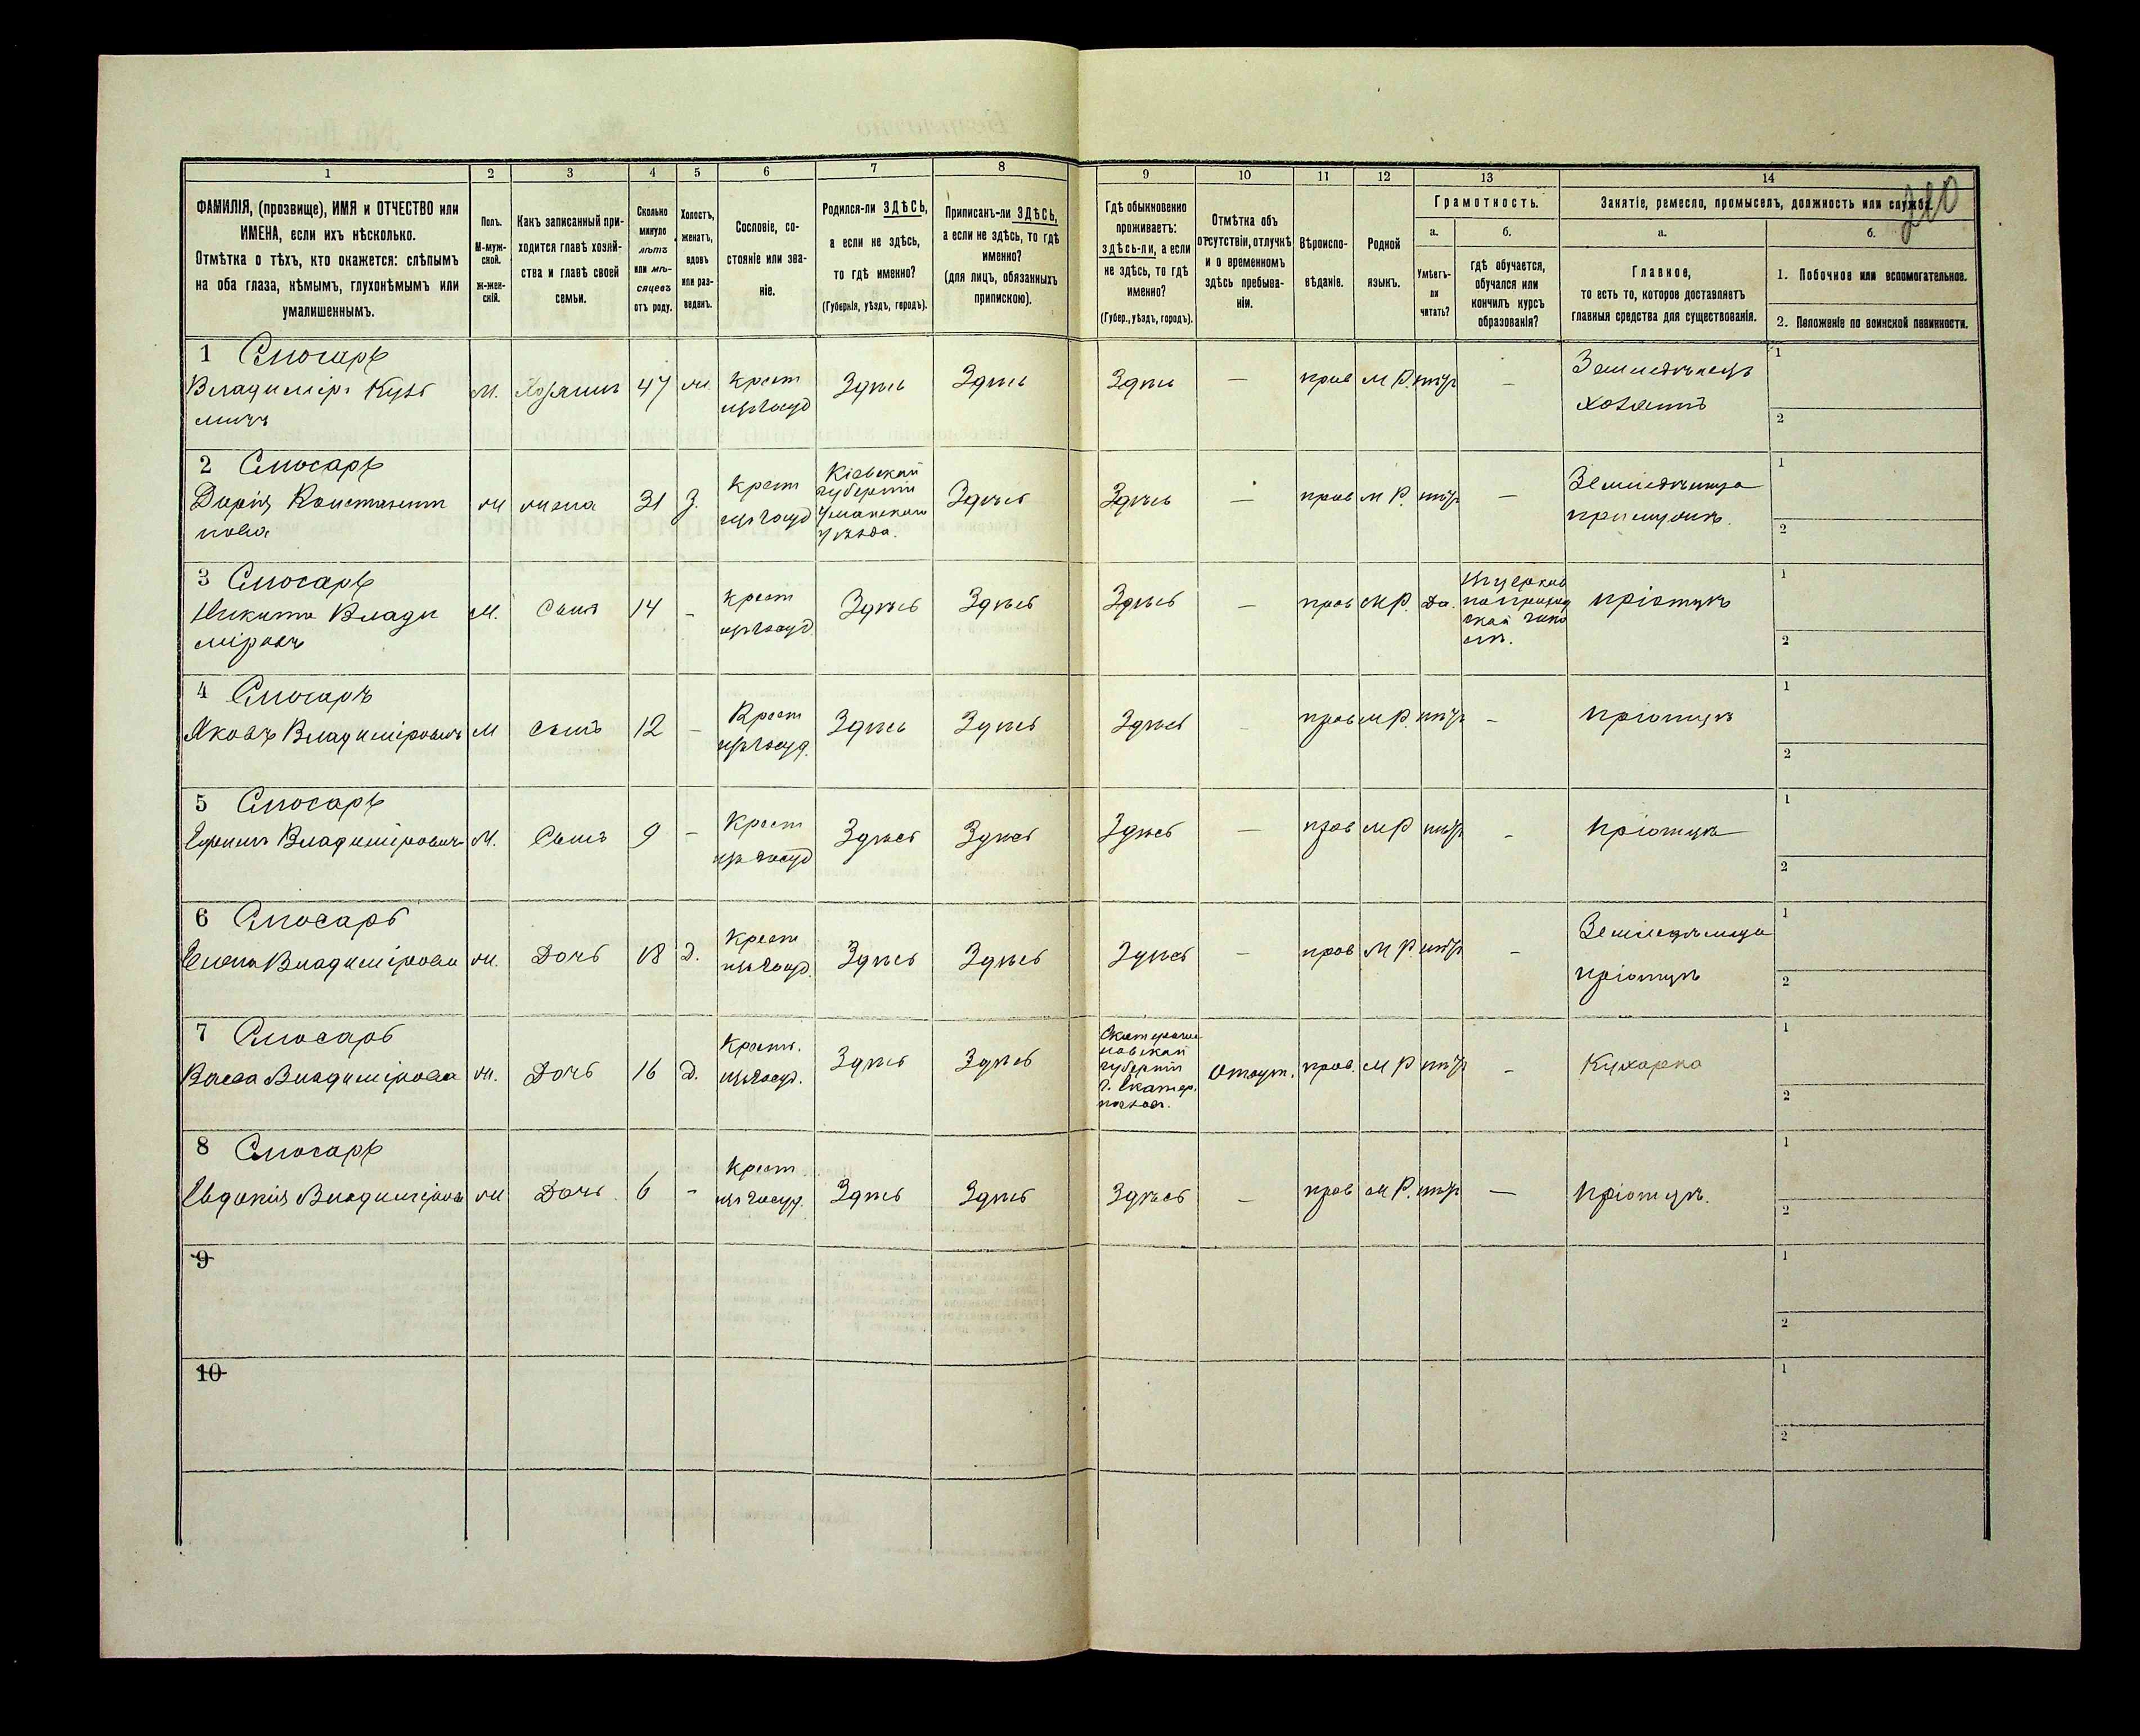 1 2 3 4 5 6 7 8 9 10 11 12 13 14
ФАМИЛІЯ, (прозвище), ИМЯ и ОТЧЕСТВО или
ИМЕНА, если ихъ нѣсколько.
Отмѣтка о тѣхъ, кто окажется: слѣпымъ
на оба глаза, нѣмымъ, глухонѣмымъ или
умалишеннымъ.
Полъ.
М-муж-
ской.
Ж-жен-
скій.
Какъ записанный при-
ходится главѣ хозяй-
ства и главѣ своей
семьи.
Сколько
минуло
лѣтъ
или мѣ-
сяцевъ
отъ роду.
Холостъ,
женатъ,
вдовъ
или раз-
веденъ.
Сословіе, со-
стояніе или зва-
ніе.
Родился-ли ЗДѢСЬ,
а если не здѣсь,
то гдѣ именно?
(Губернія, уѣздъ, городъ).
Приписанъ-ли ЗДѢСЬ,
а если не здѣсь, то гдѣ
именно?
(для лицъ, обязанныхъ
припискою).
Гдѣ обыкновенно
проживаетъ:
здѣсь-ли, а если
не здѣсь, то гдѣ
именно?
(Губер., уѣздъ, городъ).
Отмѣтка объ
отсутствіи, отлучкѣ
и о временномъ
здѣсь пребыва-
ніи.
Вѣроиспо-
вѣданіе.
Родной
языкъ.
Грамотность.
а.
Умѣетъ-
ли
читать?
б.
гдѣ обучается,
обучался или
кончилъ курсъ
образованія?
Занятіе, ремесло, промыселъ, должность или служба.
210
а.
Главное,
то есть то, которое доставляетъ
главныя средства для существованія.
б.
1. Побочное или вспомогательное.
2. Положеніе по воинской повинности.
1 Слюсарь
Владиміръ Кузь
мичъ
М. Хозяинъ 47 ж. крест
изъ госуд Здѣсь Здѣсь Здѣсь — прав М Р. нѣтъ — Земледѣлецъ
хозяинъ
1
2
2 Слюсарь
Дарія Констант
нова
ж жена 31 З. крест
изъ госуд Кіевской
губерніи
Уманскаго
уѣзда. Здѣсь Здѣсь — прав М Р. нѣтъ —
1
2
3 Слюсарь
Никита Влади
міровъ
М. Сынъ 14 - крест
изъ госуд Здѣсь Здѣсь Здѣсь — прав М Р. Да.
1
2
4 Слюсаръ
Яковъ Владиміровичъ М сынъ 12 - Крест
изъ госуд. Здѣсь Здѣсь Здѣсь прав М Р. нѣтъ -
1
2
5 Слюсарь
Владиміровичъ М. Сынъ 9 - Крест
изъ госуд Здѣсь Здѣсь Здѣсь — прав М Р нѣтъ -
1
2
6 Слюсарь
Елена Владимірова ж. Дочь 18 Д. Крест
изъ госуд. Здѣсь Здѣсь Здѣсь - прав М Р. нѣтъ -
1
2
7 Слюсарь
Васса Владимірова ж. Дочь 16 Д. Крест.
изъ госуд. Здѣсь Здѣсь Екатерино
славской
губерніи
г. Екатер. Отсут. прав. М Р нѣтъ - Кухарка
1
2
8 Слюсарь
Евдокія Владимірова ж Дочь 6 - Крест
изъ госуд. Здѣсь Здѣсь Здѣсь — прав М Р. нѣтъ —
1
2
9
1
2
10
1
2